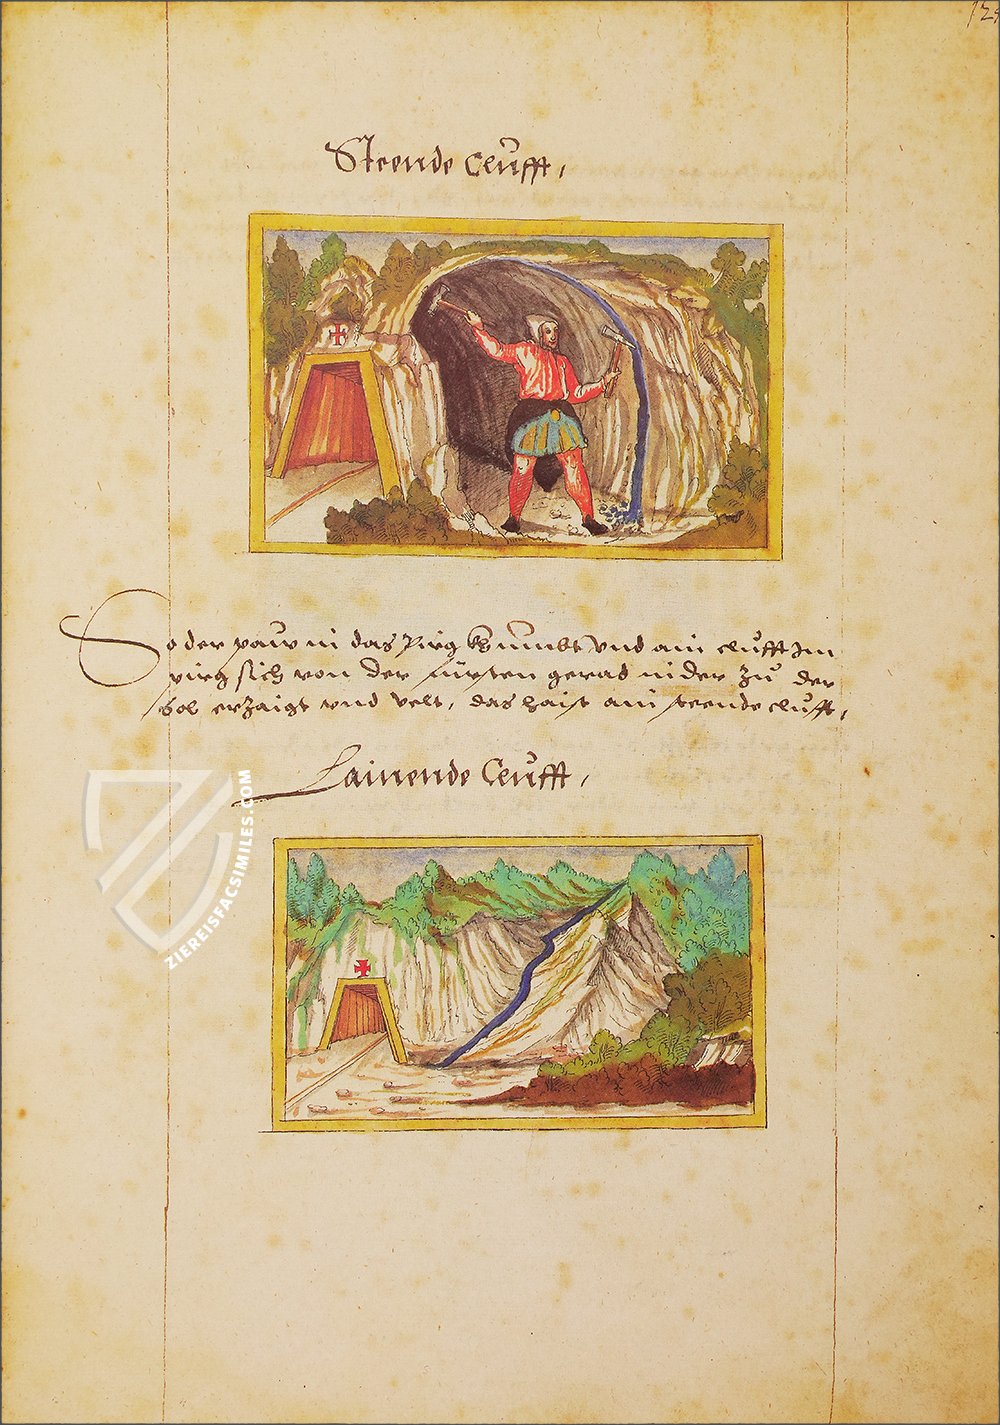 Steende Clufft,
So der paw in das Pirg khumbt vnd ain clufft Im
pirg sich von der fürsten gerad nider zu der
Sol erzaigt vnd velt, das haist ain steende clufft,
Lainende Clufft,
ZIEREISFACSIMILES.COM